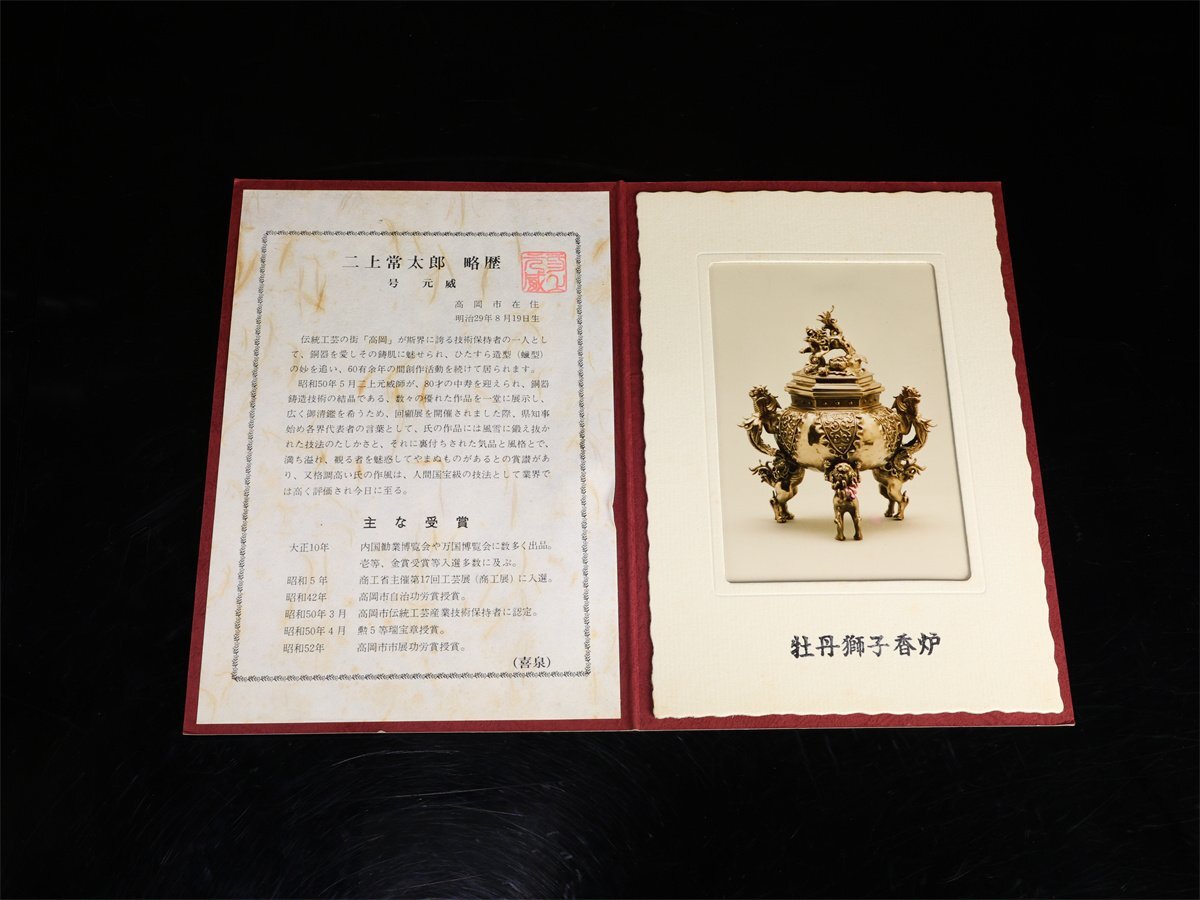 二上常太郎 略歴
号 元威
高岡市在住
明治29年8月19日生
伝統工芸の街「高岡」が斯界に誇る技術保持者の一人とし
て、銅器を愛しその鋳肌に魅せられ、ひたすら造型(蠟型)
の妙を追い、60有余年の間創作活動を続けて居られます。
昭和50年5月二上元威師が、80才の中寿を迎えられ、銅器
鋳造技術の結晶である、数々の優れた作品を一堂に展示し、
広く御清鑑を希うため、回顧展を開催されました際、県知事
始め各界代表者の言葉として、氏の作品には風雪に鍛え抜か
れた技法のたしかさと、それに裏付ちされた気品と風格とで、
満ち溢れ、観る者を魅惑してやまぬものがあるとの賞讃があ
り、又格調高い氏の作風は、人間国宝級の技法として業界で
は高く評価され今日に至る。
主な受賞
大正10年 内国勧業博覧会や万国博覧会に数多く出品。
壱等、金賞受賞等入選多数に及ぶ。
昭和5年 商工省主催第17回工芸展(商工展)に入選。
昭和42年 高岡市自治功労賞授賞。
昭和50年3月 高岡市伝統工芸産業技術保持者に認定。
昭和50年4月 勲5等瑞宝章授賞。
昭和52年 高岡市市展功労賞授賞。
(喜泉)
牡丹獅子香炉